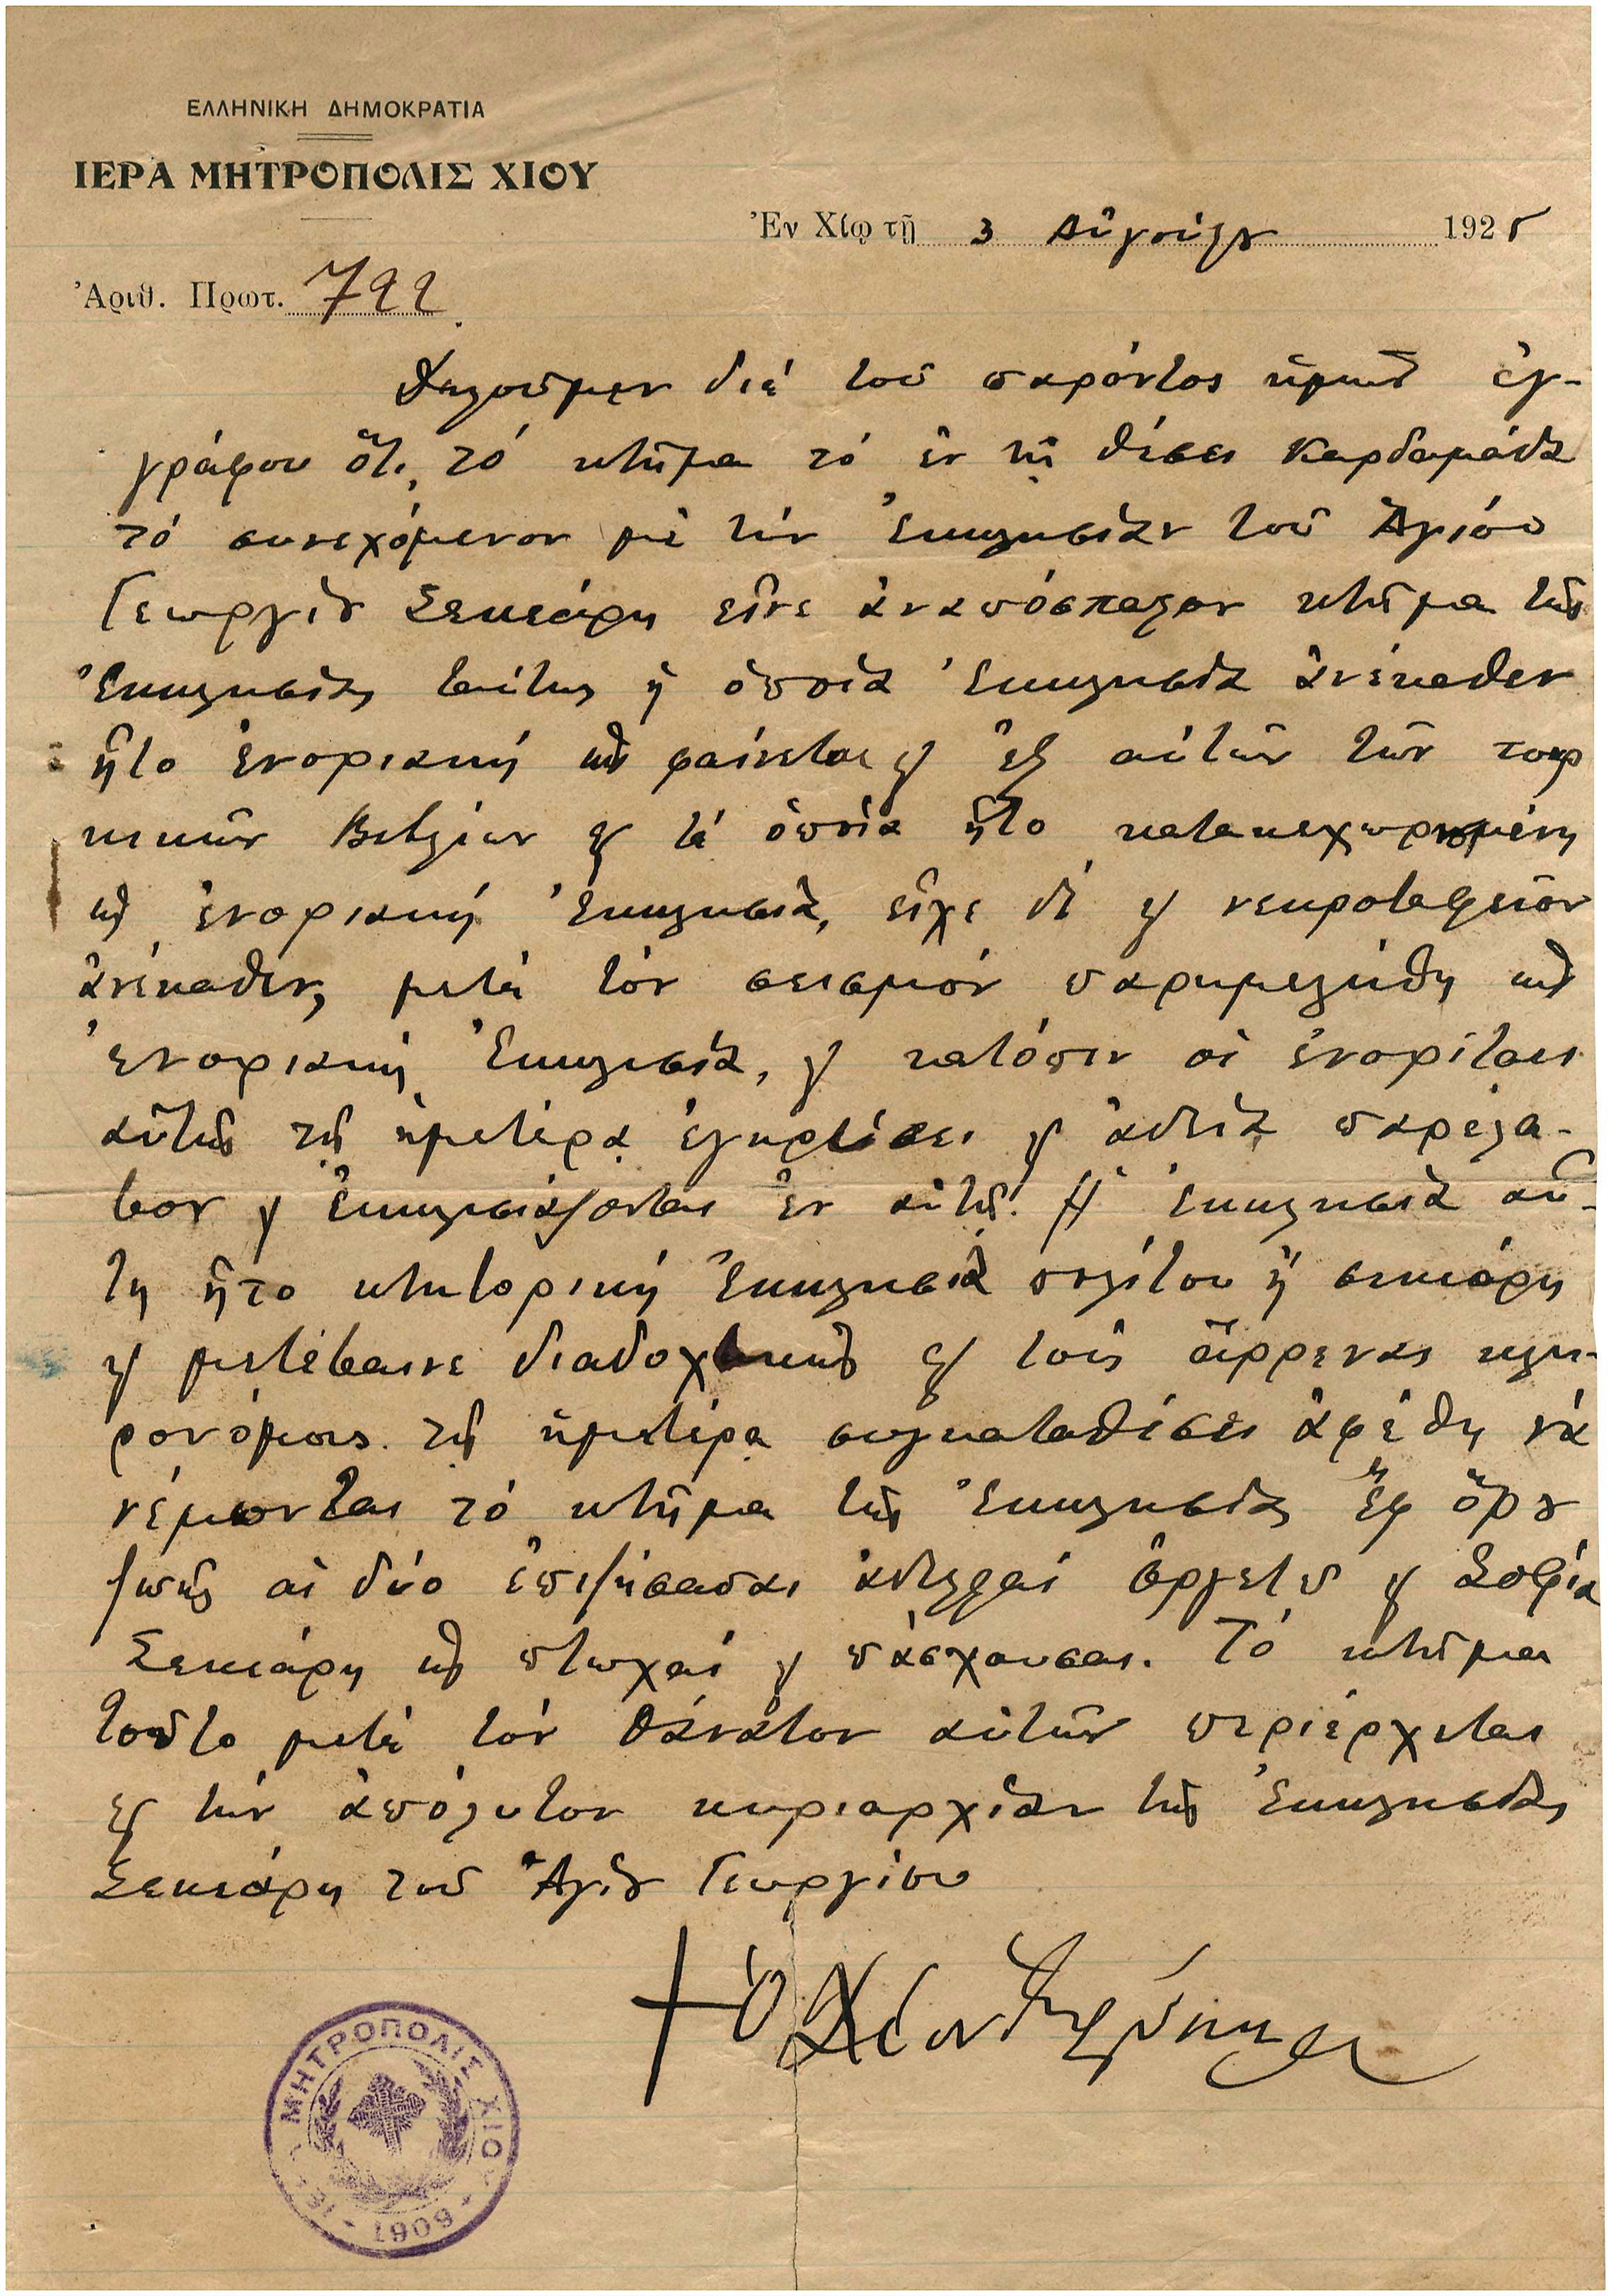 ΕΛΛΗΝΙΚΗ ΔΗΜΟΚΡΑΤΙΑ
ΙΕΡΑ ΜΗΤΡΟΠΟΛΙΣ ΧΙΟΥ
Ἐν Χίῳ τῇ 3 Αὐγούστου 192
Ἀριθ. Πρωτ. 722
Δηλοῦμεν διὰ τοῦ παρόντος ἡμῶν ἐγ-
γράφου ὅτι τό κτῆμα τό ἐν τῇ θέσει Καρδαμάδα
τό συνεχόμενον μὲ τήν Ἐκκλησίαν τοῦ Ἁγίου
Γεωργίου Σεκιάρη εἶνε ἀναπόσπαστον κτῆμα τῆς
Ἐκκλησίας ταύτης ἡ ὁποία Ἐκκλησία ἀνέκαθεν
ἦτο ἐνοριακή ὡς φαίνεται καὶ ἐξ αὐτῶν τῶν
βιβλίων εἰς τά ὁποῖα ἦτο κατακεχωρισμένη
ὡς ἐνοριακή Ἐκκλησία, εἶχε δέ καὶ νεκροταφεῖον
ἀνέκαθεν, μετά τόν σεισμόν παρημελήθη ὡς
ἐνοριακή Ἐκκλησία, καὶ κατόπιν οἱ ἐνορίται
αὐτῆς τῇ ἡμετέρᾳ ἐγκρίσει καὶ ἀδείᾳ παρέλα-
βον καὶ ἐκκλησιάζονται ἐν αὐτῇ. Ἡ Ἐκκλησία αὕ-
τη ἦτο κτητορική Ἐκκλησία πολίτου ἤ σεκιάρη
καὶ μετέβαινε διαδοχικῶς εἰς τούς ἄρρενας κλη-
ρονόμους. τῇ ἡμετέρᾳ συγκαταθέσει ἀφέθη νά
νέμωνται τό κτῆμα τῆς Ἐκκλησίας ἐφ ὅρου
ζωῆς αἱ δύο ἐπιζήσασαι ἀδελφαί Ἀργεντοῦ καὶ Σοφία
Σεκιάρη ὡς πτωχαί καὶ πάσχουσαι. Τό κτῆμα
τοῦτο μετά τόν θάνατον αὐτῶν περιέρχεται
εἰς τήν ἀπόλυτον κυριαρχίαν τῆς Ἐκκλησίας
Σεκιάρη τοῦ Ἁγίου Γεωργίου
† Ὁ Χίου
ΜΗΤΡΟΠΟΛΙΣ ΧΙΟΥ
1909